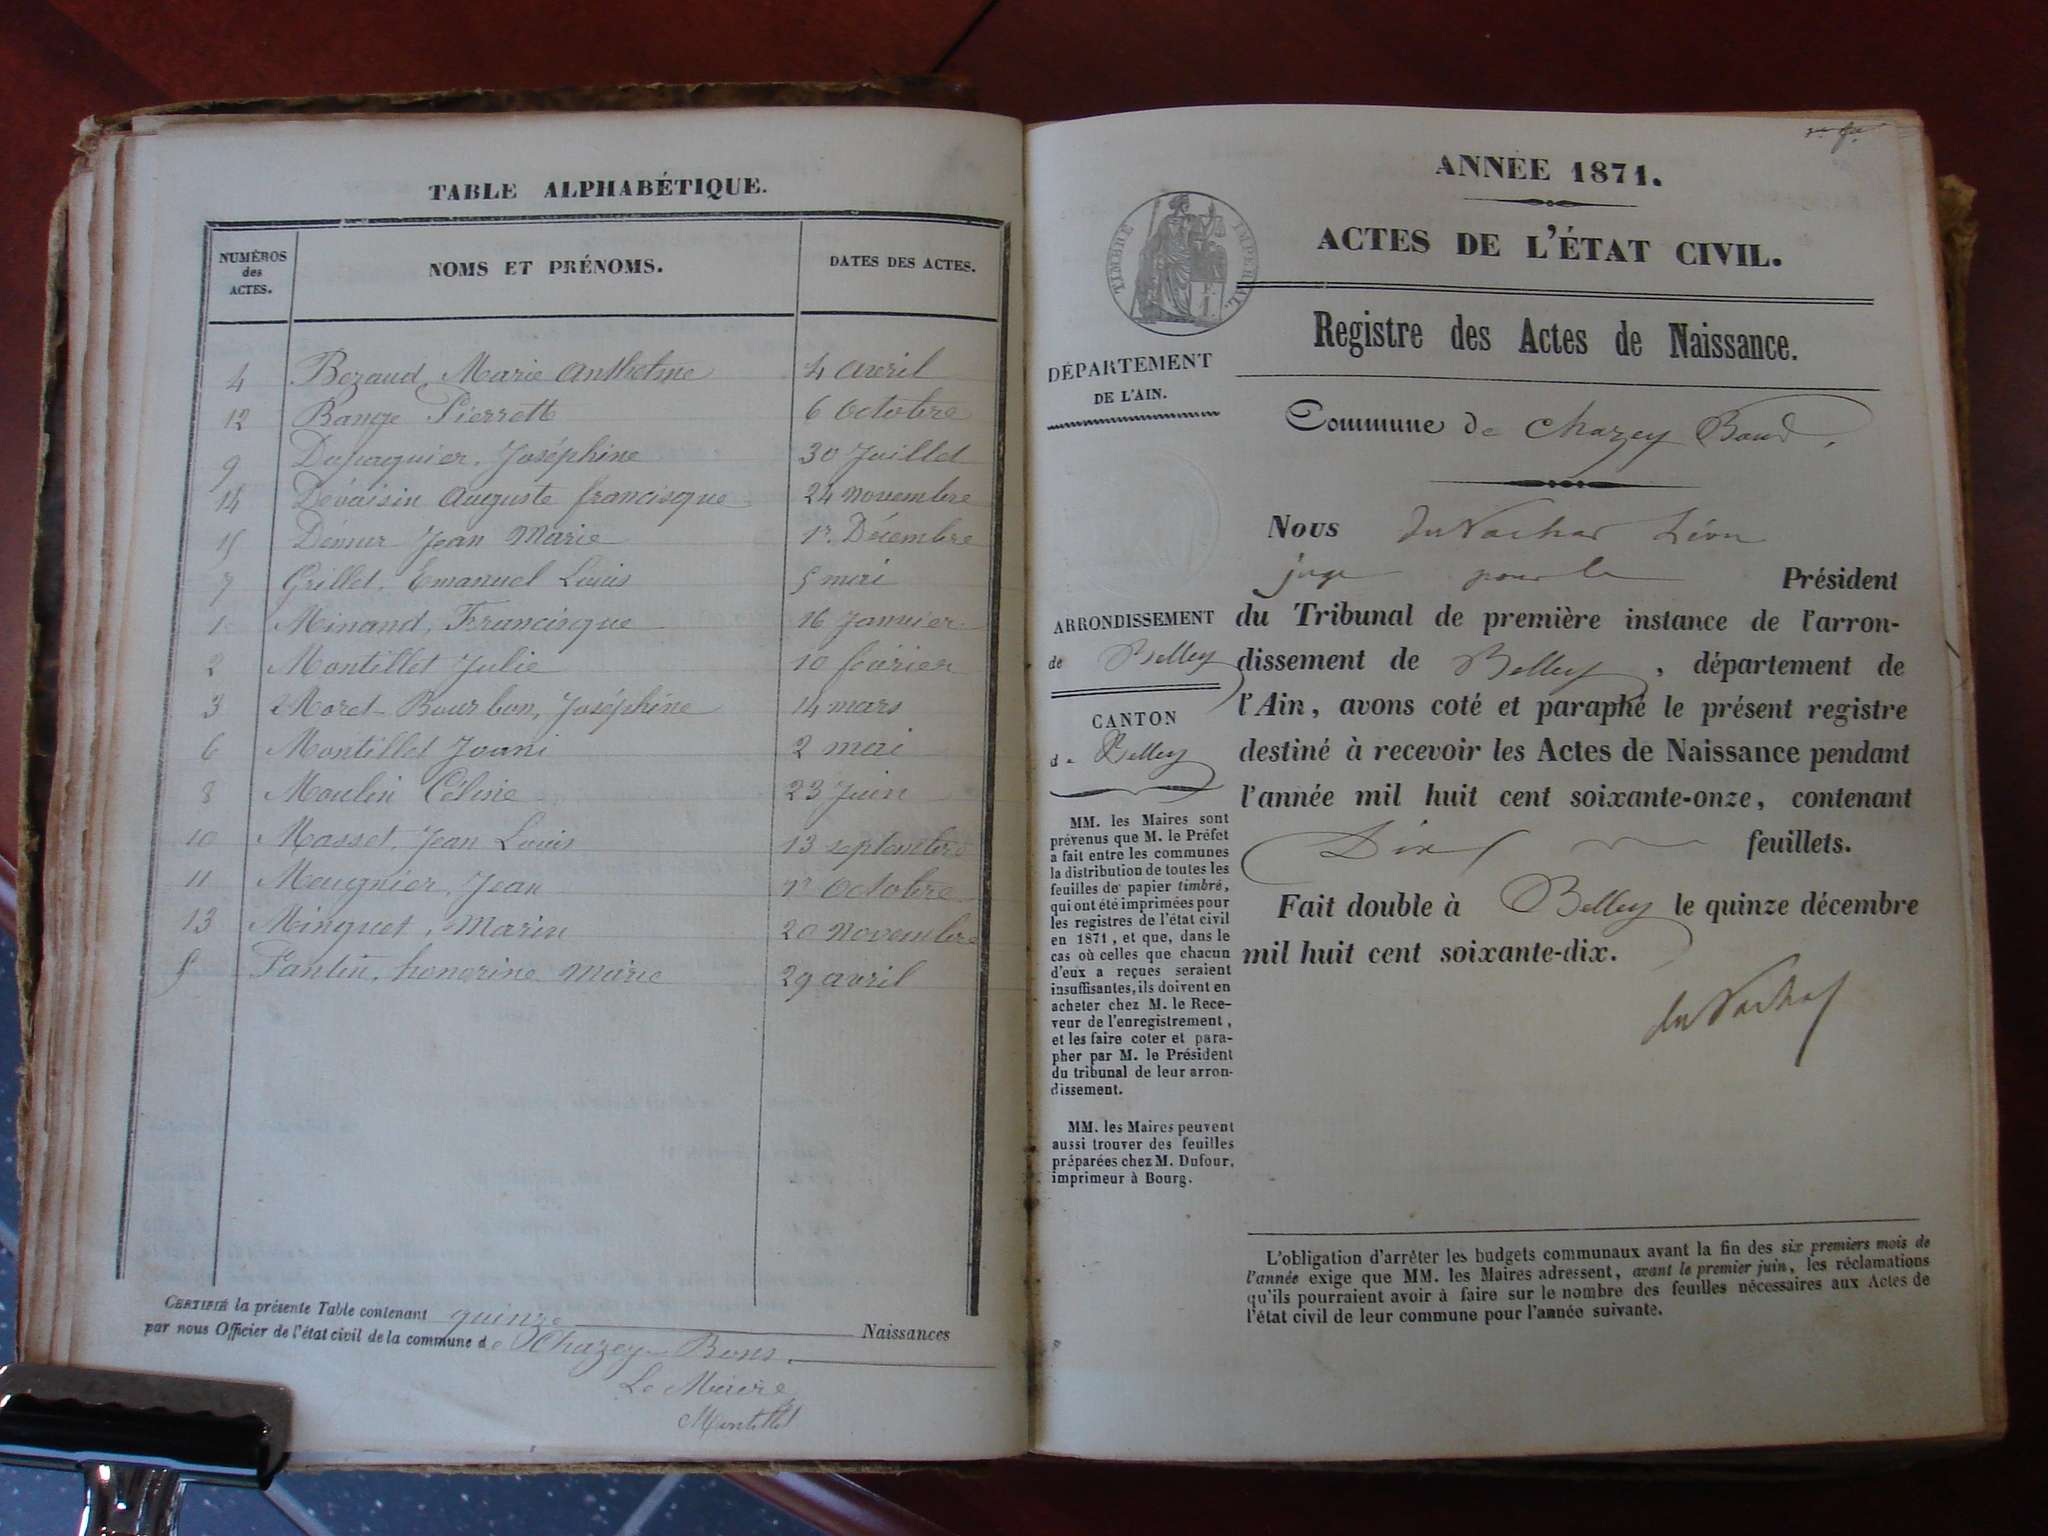 TABLE ALPHABÉTIQUE.
NUMÉROS des ACTES. NOMS ET PRÉNOMS. DATES DES ACTES.
4 Bozaud, Marie Anthelme 4 avril
12 Pierrette 6 Octobre
9 Joséphine 30 Juillet
14 Dévaisin Auguste francisque 24 novembre
15 Démur Jean Marie 1er Décembre
7 Grillet, Emanuel Louis 5 mai
1 Minand, Francisque 16 Janvier
2 Montillet Julie 10 février
3 Moret-Bourbon, Joséphine 14 mars
6 Montillet 2 mai
8 Moulin Céline 23 Juin
10 Masset, Jean Louis 13 septembre
11 Meugnier, Jean 1er Octobre
13 Minguet, Marin 20 Novembre
5 Fantin, honorine Marie 29 avril
CERTIFIÉ la présente Table contenant quinze Naissances
par nous Officier de l'état civil de la commune de Chazey-Bons.
Le Maire
Montillet
ANNÉE 1871.
ACTES DE L'ÉTAT CIVIL.
TIMBRE IMPÉRIAL
Registre des Actes de Naissance.
DÉPARTEMENT
DE L'AIN.
Commune de Chazey Bons,
Nous Léon
juge pour le Président
du Tribunal de première instance de l'arron-
dissement de Belley, département de
l'Ain, avons coté et paraphé le présent registre
destiné à recevoir les Actes de Naissance pendant
l'année mil huit cent soixante-onze, contenant
Dix feuillets.
Fait double à Belley le quinze décembre
mil huit cent soixante-dix.
ARRONDISSEMENT
de Belley
CANTON
de Belley
MM. les Maires sont
prévenus que M. le Préfet
a fait entre les communes
la distribution de toutes les
feuilles de papier timbré,
qui ont été imprimées pour
les registres de l'état civil
en 1871, et que, dans le
cas où celles que chacun
d'eux a reçues seraient
insuffisantes, ils doivent en
acheter chez M. le Rece-
veur de l'enregistrement,
et les faire coter et para-
pher par M. le Président
du tribunal de leur arron-
dissement.
MM. les Maires peuvent
aussi trouver des feuilles
préparées chez M. Dufour,
imprimeur à Bourg.
L'obligation d'arrêter les budgets communaux avant la fin des six premiers mois de
l'année exige que MM. les Maires adressent, avant le premier juin, les réclamations
qu'ils pourraient avoir à faire sur le nombre des feuilles nécessaires aux Actes de
l'état civil de leur commune pour l'année suivante.